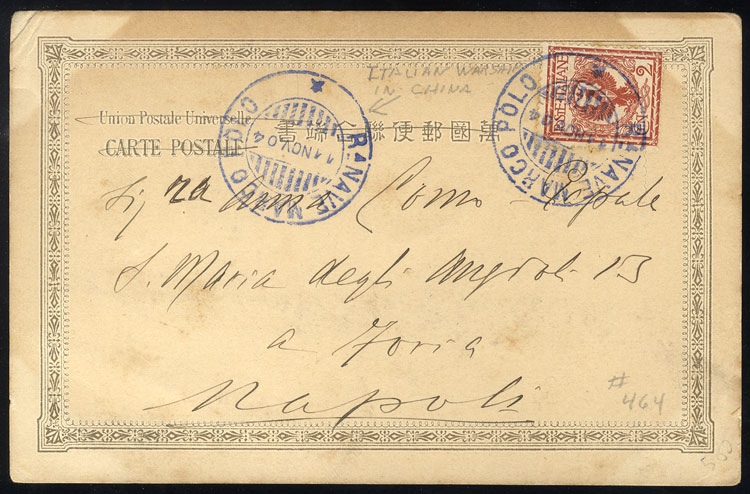 ITALIAN WARSHIP
IN CHINA
R. NAVE MARCO POLO
11 NOV 04
R. NAVE MARCO POLO
11 NOV 04
POSTE ITALIANE
2
Union Postale Universelle
CARTE POSTALE
書端名聯便郵國萬
Sig.ra Anna Como
S. Maria degli Angioli 13
a Foria
Napoli
#
464